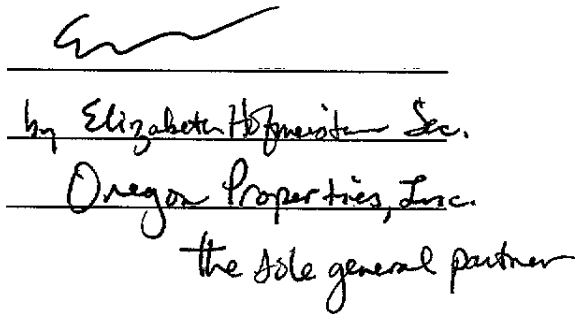 by Elizabeth Hofmeister Sec.
Oregon Properties, Inc.
the sole general partner